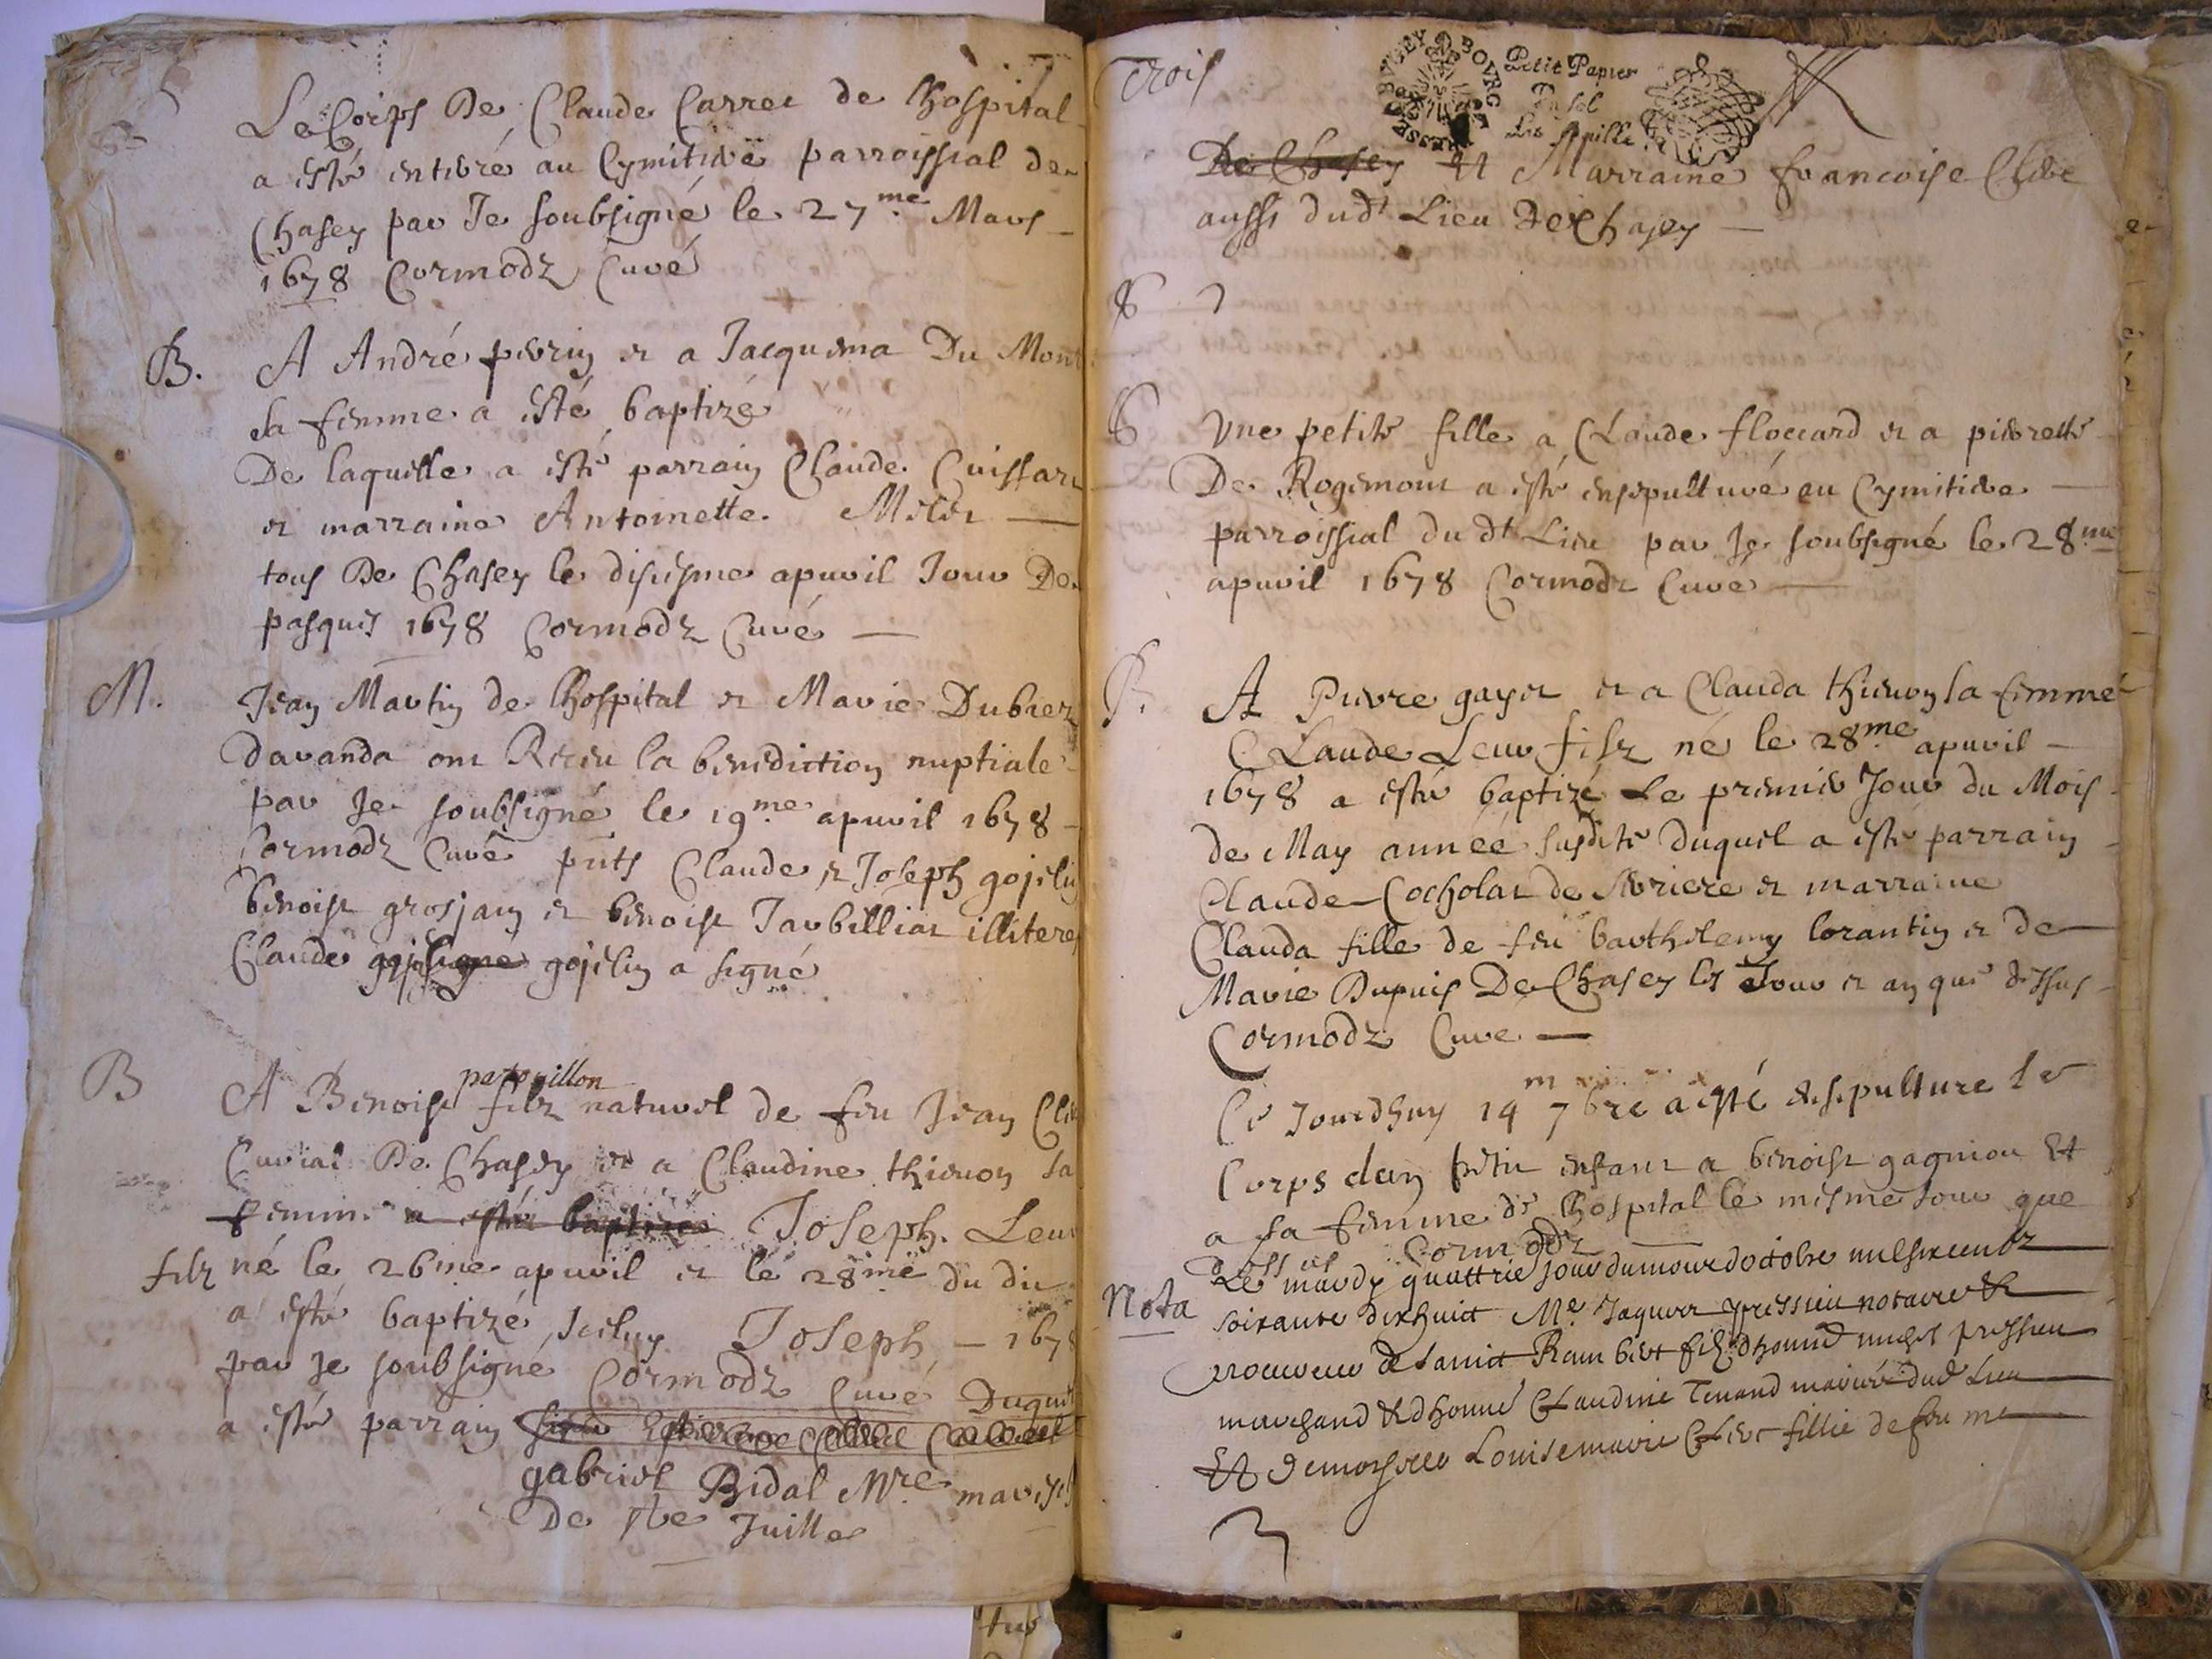 Le Corps De Claude Carret de Lhospital
a esté enterré au Cymitiere parroissial de
Chasey par Je soubsigné le 27me Mars
1678 Cormodz Curé
B. A André perrin et a Jacquema Du Mont
sa femme a esté baptizé
De laquelle a esté parrain Claude Cuissar
et marraine Antoinette Milet
tous De Chasey le disiesme apuril Jour De
pasques 1678 Cormodz Curé
M. Jean Martin de Lhospital et Marie Dubrez
davanda ont Receu la benediction nuptiale
par Je soubsigné le 19me apuril 1678
Cormodz Curé pnts Claude et Joseph gojelin
benoist grosjan et benoist Jarbilliat illiteres
Claude gojelin a signé
B A Benoist perrouillon filz naturel de feu Jean
Curiat De Chasey et a Claudine thieuon sa
femme a esté baptizé Joseph Leur
filz né le 26me apuril et le 28me du dit
a esté baptizé Iceluy Joseph - 1678
par Je soubsigné Cormodz Curé Duquel
a esté parrain
gabriel Bidal Mre
De Ste Juille
Trois
BOURG BUGEY
Petit Papier
La feuille
De Chasey et Marraine francoise Clere
aussi dudt Lieu De Chasey
S Une petite fille a Claude floccard et a pierrette
De Rogemont a esté ensepulturé au Cymitiere
parroissial du dt Lieu par Je soubsigné le 28me
apuril 1678 Cormodz Curé
B. A Pierre gayet et a Clauda thieuon sa femme
Claude Leur filz né le 28me apuril
1678 a esté baptizé Le premier Jour du Mois
de May année susdite duquel a esté parrain
Claude Cocholat de Riviere et marraine
Clauda fille de feu barthelemy lorantin et de
Marie Dupuis De Chasey les Jour et an que dessus
Cormodz Curé
Ce Jourdhuy 14m 7bre a esté sepulture le
Corps dun petit enfant a benoist gagniou Et
a sa femme de Lhospital le mesme Jour que
dessus Cormodz
Nota Le mardy quattrie jour du mois doctobre mil six centz
soixante dixhuict Me Jaques pressieu notaire &
procureur de Sainct Rambert filz dhonne pressieu
marchand & dhonne Claudine Tenand mariés dud Lieu
Et Damoyselle Louise marie Clerc fillie de feu me